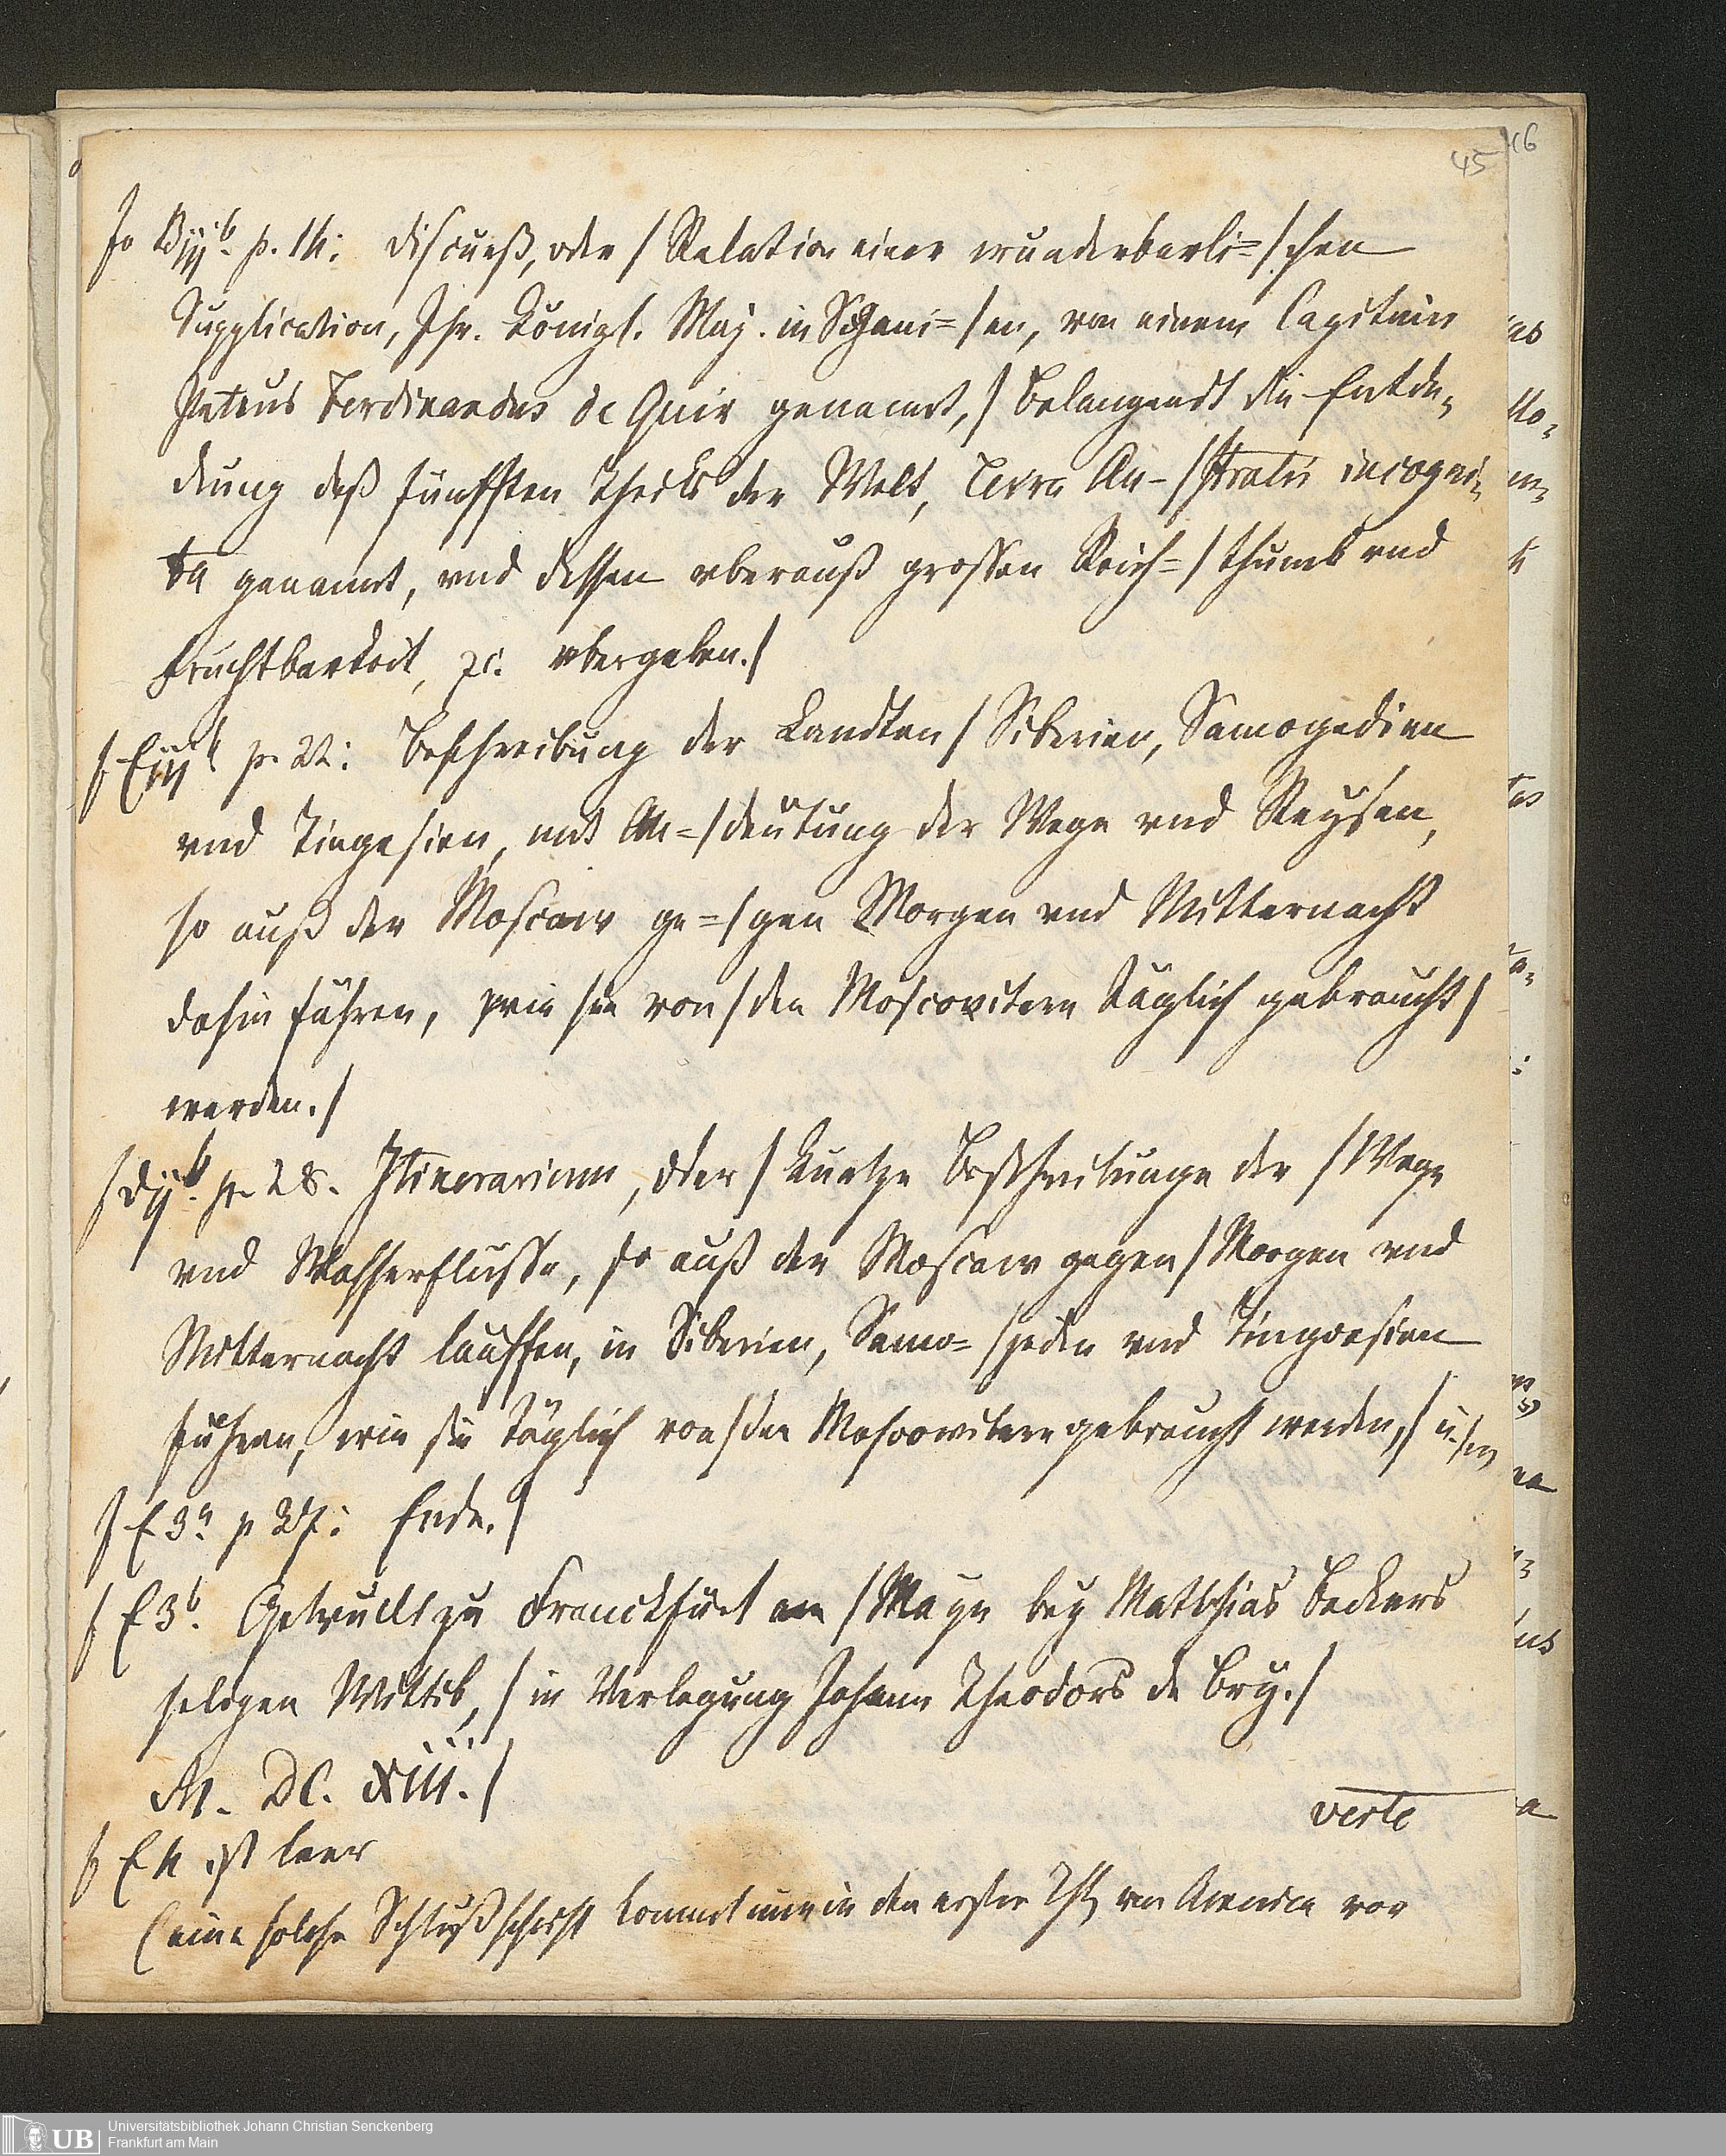 45
16
fo Biijb. p. 14: Discurß, oder / Relation einer wunderbarli=/chen
Supplication, Ihr. Königl. Maj. in Hispani=/en, von einem Capitain
Petrus Ferdinandes de Quir genannt, / Belangendt die Entde-
ckung deß fünfften Theils der Welt, Terra Au-/stralis incogni-
ta genannt, vnd dessen vberauß grossen Reich=/thumb vnd
Fruchtbarkeit, ꝛc. vbergeben. /
f Ciijb p. 22: Beschreibung der Landten / Siberien, Samogedien
vnd Tingesien, mit An=/deutung der Wege vnd Reysen,
so auß der Moscaw ge=/gen Morgen vnd Mitternacht
dahin führen, wie sie von / den Moscovitern täglich gebraucht /
werden. /
f Dijb. p. 28. Itinerarium, Oder / Kurtze Beschreibunge der / Wege
vnd Wasserflüsse, so auß der Moscaw gegen / Morgen vnd
Mitternacht lauffen, in Siberien, Samo=/jeden vnd Tingoesien
führen, wie sie täglich von / den Moscowitern gebraucht werden, / u. s. w.
f E3a p 37: Ende. /
f E3b. Getruckt zu Franckfurt am / Mayn bey Matthias Beckers
seligen Wittib, / in Verlegung Johann Theodors de Bry. /
M. DC. XIII. /
verte
f E4 ist leer
(eine solche Schlußschrift kommt nur in den ersten Thl. von America vor
Universitätsbibliothek Johann Christian Senckenberg
UB Frankfurt am Main